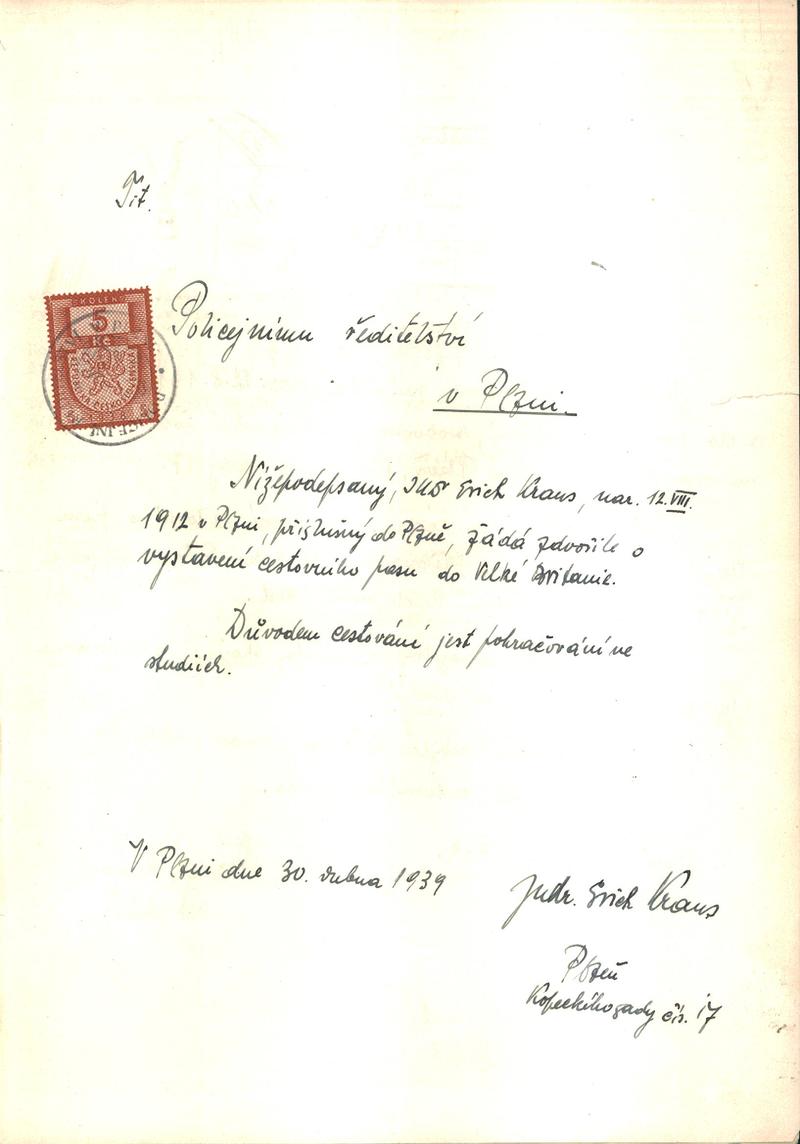 Tit.
KOLEK
5
Kč
Policejnímu ředitelství
v Plzni.
Nížepodepsaný, JUDr Erich Kraus, nar. 12.VIII.
1912 v Plzni, příslušný do Plzně, žádá zdvořile o
vystavení cestovního pasu do Velké Britanie.
Důvodem cestování jest pokračování ve
studiích.
V Plzni dne 30. dubna 1939
Judr. Erich Kraus
Plzeň
Kopeckého sady čís. 17